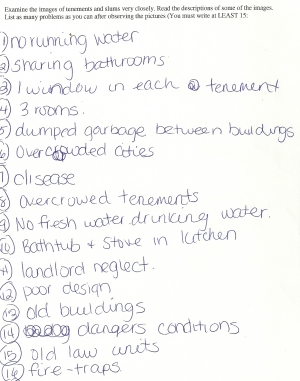 Examine the images of tenements and slums very closely. Read the descriptions of some of the images.
List as many problems as you can after observing the pictures (You must write at LEAST 15:
1) no running water
2) sharing bathrooms
3) 1 window in each tenement
4) 3 rooms.
5) dumped garbage between buildings
6) Overcrowded cities
7) disease
8) Overcrowed tenements
9) No fresh water drinking water.
10) Bathtub + Stove in kitchen
11) landlord neglect.
12) poor design
13) old buildings
14) dangers conditions
15) old law units
16) fire-traps